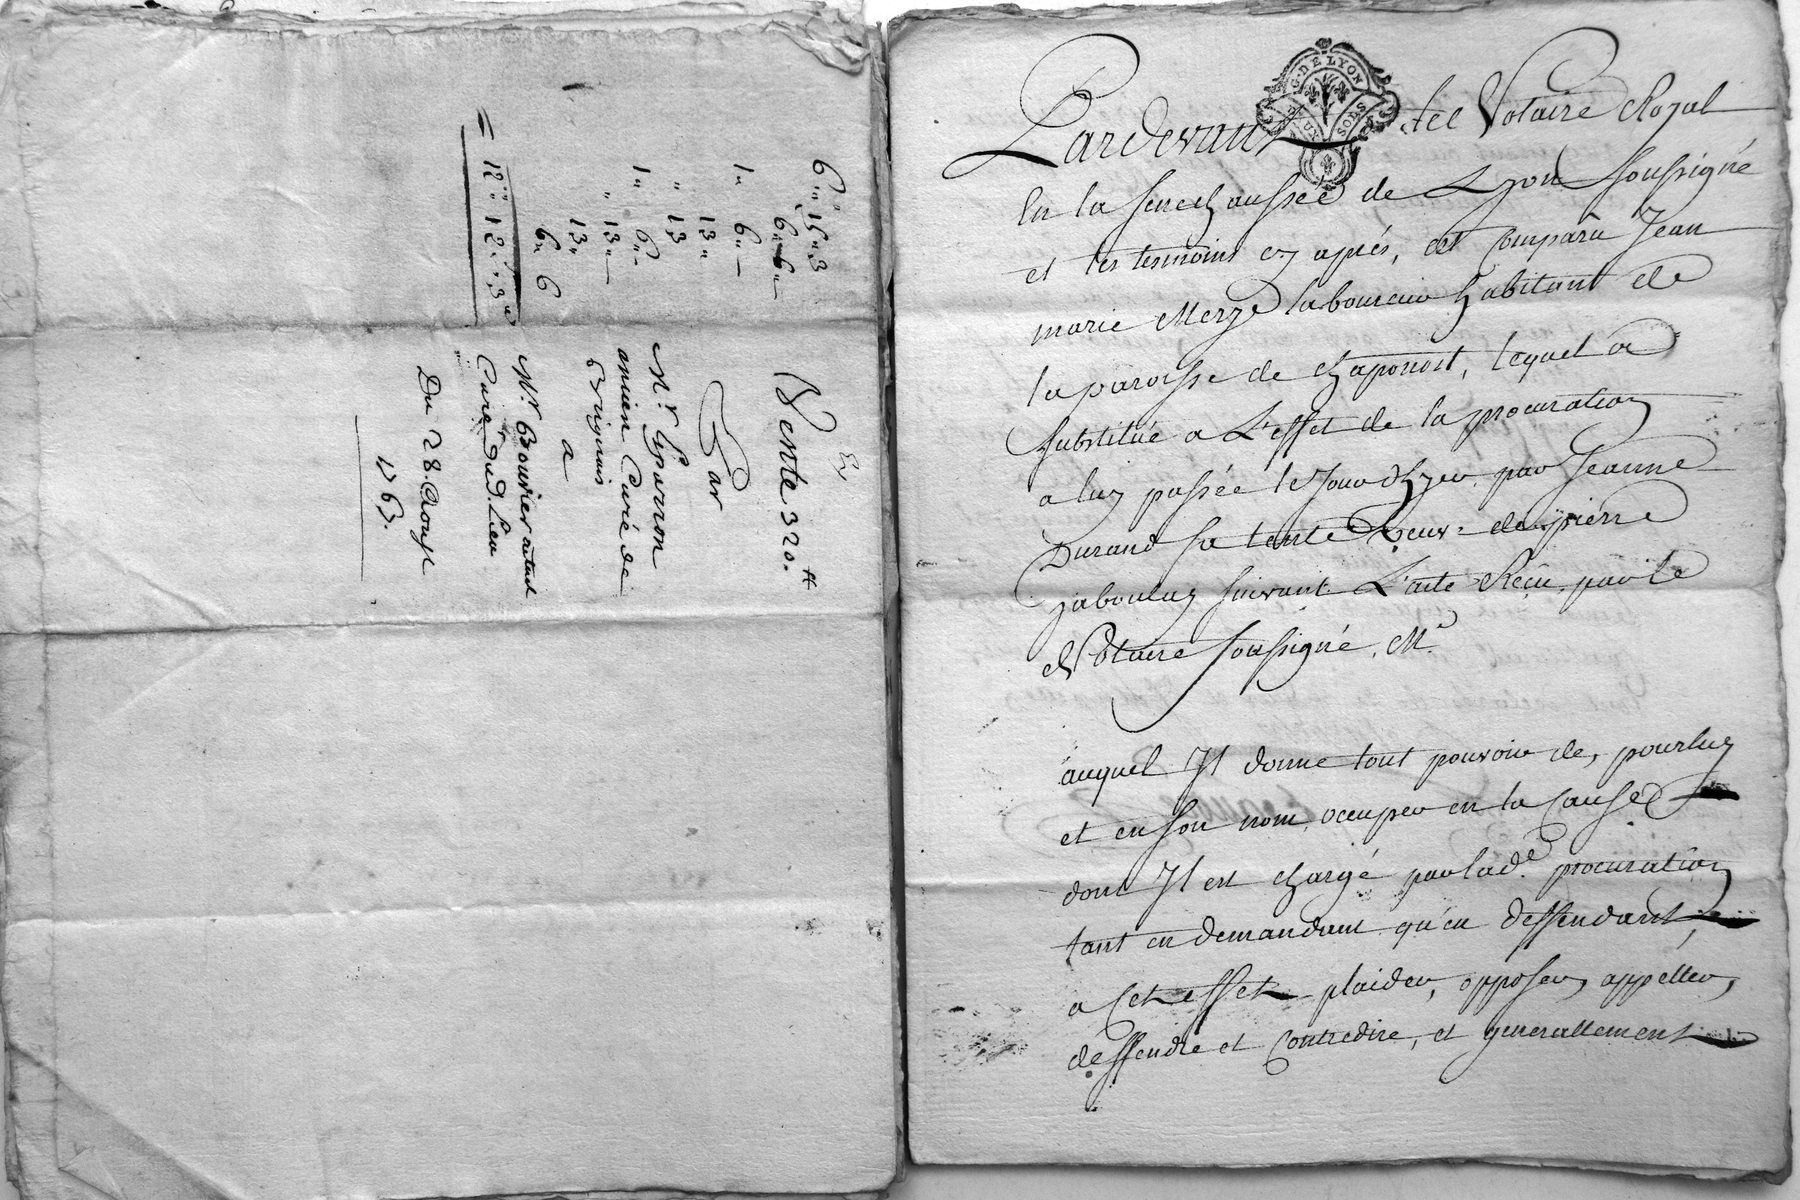 6" 15" 3
6" 6"
1" 6"
13"
" 13
1" 6"
" 13"
13"
6" 6
12" 12" 3
Vente 320.tt
Par
Mr. Gparron
ancien Curé de
Brignais
a
Mr. Bouvier actuel
Curé dud. Lieu
Du 28. Aoust
1763.
G. DE LYON
UN SOLS
Pardevant Notaire Royal
En la Senechaussée de Lyon Soussigné
et les tesmoins cy après, est Comparû Jean
marie Merze laboureur habitant de
la paroisse de chaponost, lequel a
Substitué a L'effet de la procuration
a luy passée le Jour d'hyer par Jeanne
Durand sa tente Veuve de pierre
Jaboulay suivant L'acte Reçu par le
Notaire Soussigné, Me.
auquel Il donne tout pouvoir de, pour luy
et en son nom, occuper en la Cause
dont Il est chargé par lade. procuration
tant en demandant qu'en deffendant,
a Cet effet plaider, opposer, appeller,
deffendre et Contredire, et generallement